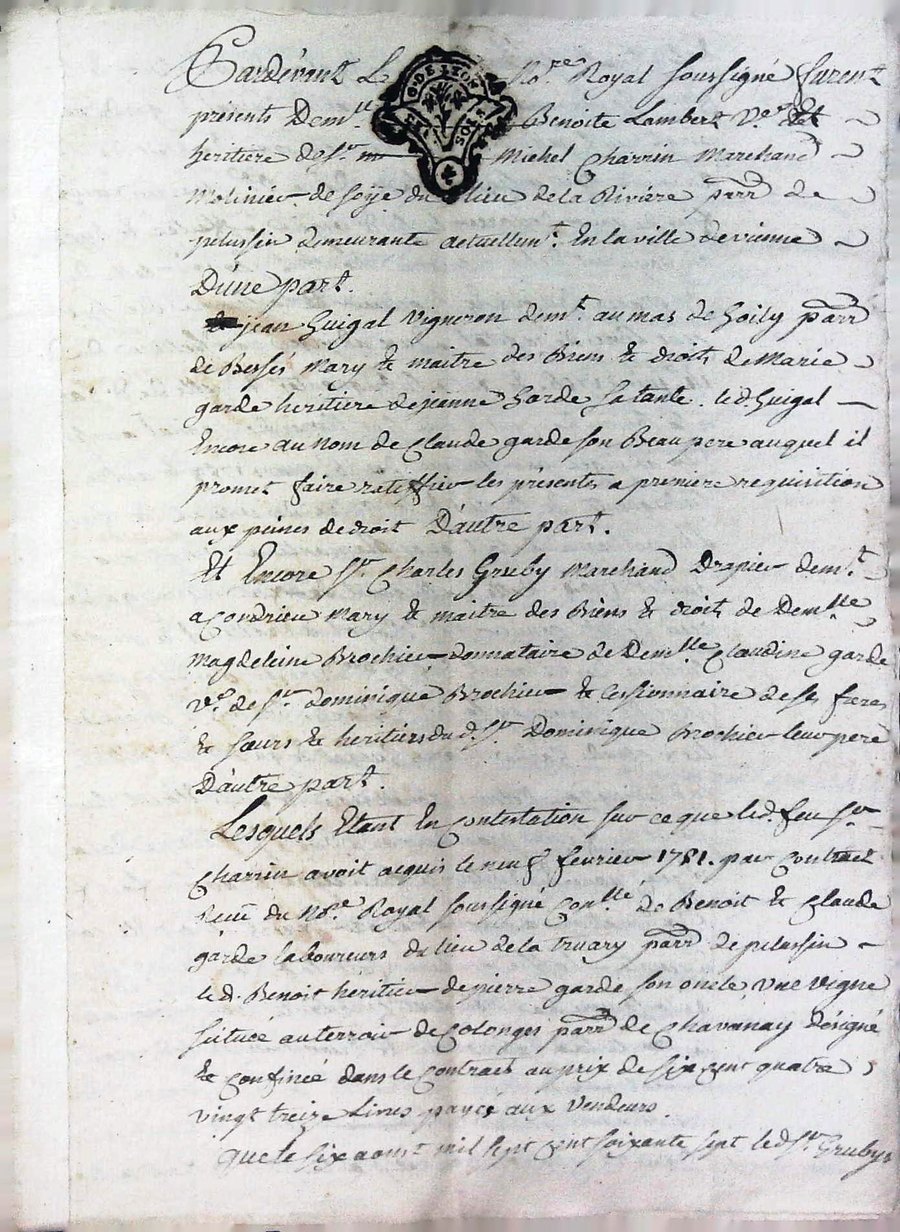 Pardevant Le No.re Royal soussigné furent
présents Dem.lle Benoite Lambert V.e et
heritiere de S.r Michel Charrin Marchand
Molinier de soÿe du lieu de la Riviere parr de
pelussin demeurante actuellem.t En la ville de vienne
D'une part.
jean Guigal Vigneron dem.t au mas de parr
de Bessés Mary & maitre des Biens & droits de Marie
garde heritiere de jeanne Garde sa tante. led. Guigal
Encore au nom de Claude garde son Beau pere auquel il
promet faire ratiffier les présentes a premiere requisition
aux peines de droit D'autre part.
Et Encore S.r Charles Gruby Marchand Drapier dem.t
a Condrieu Mary & maitre des Biens & droits de Dem.lle
Magdeleine Brochier donnataire de Dem.lle Claudine garde
v.e de S.r dominique Brochier & cessionnaire de ses freres
& sœurs & heritiers du d. S.r Dominique Brochier leur pere
D'autre part.
Lesquels Etant En Contestation sur ce que led. feu S.r
Charrin avoit acquis le neuf fevrier 1781. par Contract
Receu du No.re Royal soussigné Con.llé de Benoit & Claude
garde laboureurs du lieu de la truary parr de pelussin
le d. Benoit heritier de pierre garde son oncle, une vigne
situeé au terroir de Colonges parr de Chavanay désigné
& Confineé dans le Contract au prix de six cent quatre
vingt treize Livres payeé aux Vendeurs.
que le six aoust mil sept cent soixante sept led S.r Gruby